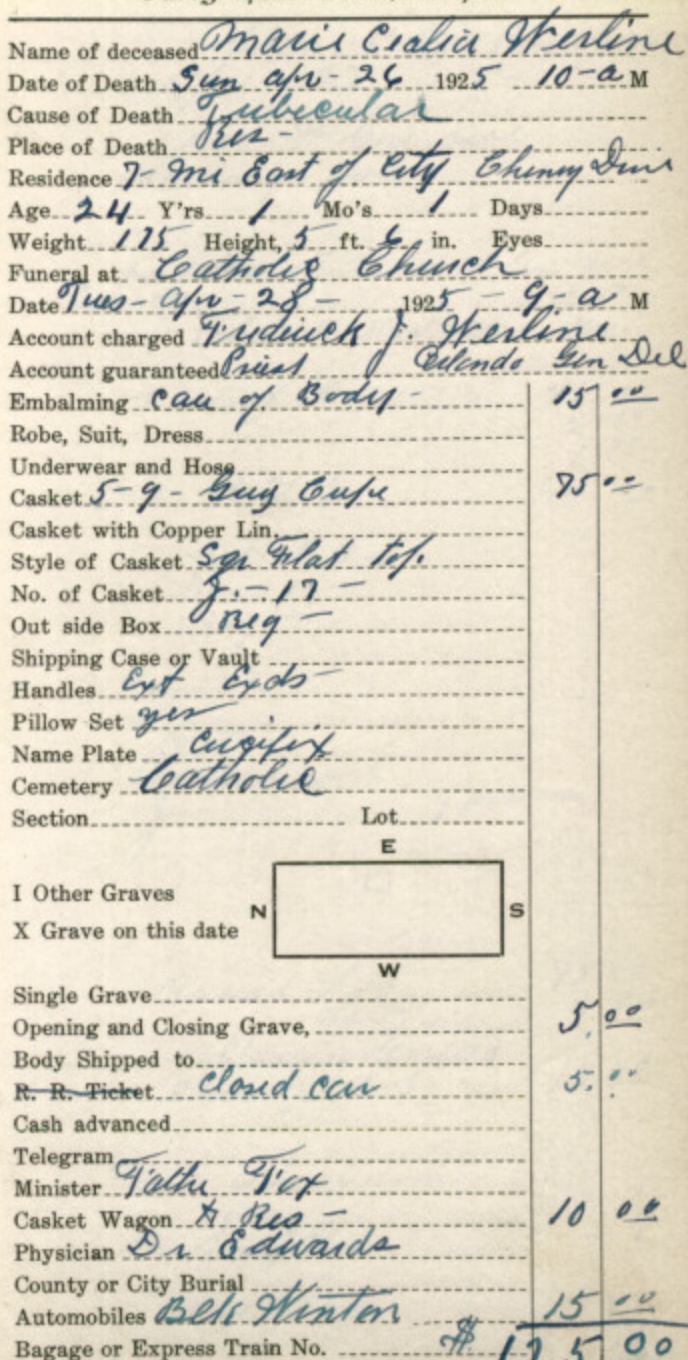 Name of deceased Marie Cealia Werline
Date of Death Sun Apr - 26 1925 10 - a M
Cause of Death Tubecular
Place of Death Res -
Residence 7 - Mi East of City Cheney
Age 24 Y'rs 1 Mo's 1 Days
Weight 175 Height, 5 ft. 6 in. Eyes
Funeral at Catholic Church
Date Tues - Apr - 28 - 1925 - 9 - a M
Account charged Fredrick J. Werline
Account guaranteed Priest Orlando Gen Del
Embalming Care of Body - 15 00
Robe, Suit, Dress
Underwear and Hose
Casket 5 - 9 - Grey 75 00
Casket with Copper Lin.
Style of Casket Sqr Flat Top.
No. of Casket J. - 17 -
Out side Box Reg -
Shipping Case or Vault
Handles Ext
Pillow Set yes
Name Plate Cucifix
Cemetery Catholic
Section Lot
E
I Other Graves
N S
X Grave on this date
W
Single Grave
Opening and Closing Grave, 5. 00
Body Shipped to
R. R. Ticket Closed Car 5. 00
Cash advanced
Telegram
Minister Father Fox
Casket Wagon Res - 10 00
Physician Dr Edwards
County or City Burial
Automobiles Winton 15 00
Bagage or Express Train No. $ 125 00